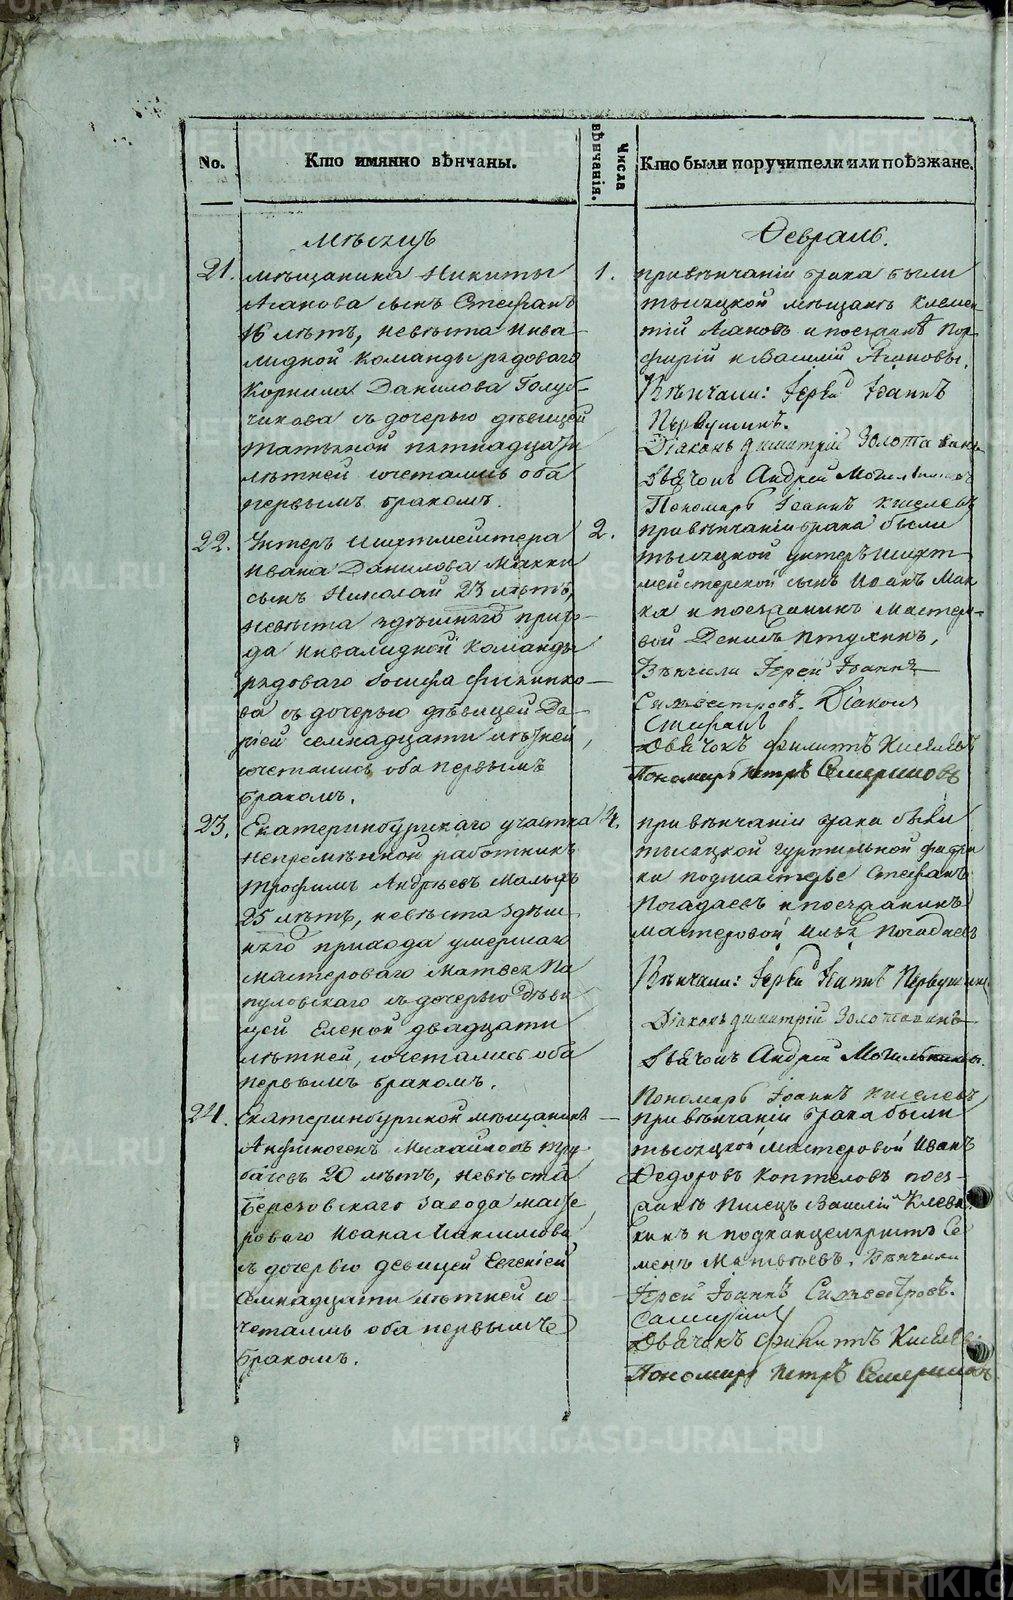 No.
Кто имянно вѣнчаны.
Числа вѣнчанія.
Кто были поручители или поѣзжане.
Мѣсяцъ
Февраль.
21.
мѣщанина Никиты
Агапова сынъ Стефанъ
16 лѣтъ, невѣста инва-
лидной команды рядоваго
Корнила Данилова Голуб-
чикова съ дочерью дѣвицей
Татьяной пятнадцати
лѣтней сочетались оба
первымъ бракомъ.
1.
при вѣнчаніи брака были
тысяцкой мѣщанъ Клемен-
тій Агаповъ и поезжанѣ Пор-
фирій и Василій Агаповы.
Вѣнчали: Іерей Іоаннъ
Первушинъ.
Діаконъ Димитрій Золота
Дьячокъ Андрей
Пономарь Іоаннъ Киселевъ
22.
Унтеръ шихтмейстера
Ивана Данилова Макки
сынъ Николай 23 лѣтъ,
невѣста здѣшняго прихо-
да инвалидной команды
рядоваго Іосифа
ва съ дочерью дѣвицей Да-
ріей семнадцати лѣтней,
сочетались оба первымъ
бракомъ.
2.
при вѣнчаніи брака были
тысяцкой унтеръ шихт-
мейстерской сынъ Иванъ Мак-
ка и поезжанинъ мастеро-
вой Денисъ Птухинъ,
Вѣнчали Іерей Іоаннъ
Сильвестровъ. Діаконъ
Стефанъ
Дьячокъ Филиппъ Киселевъ
Пономарь Петръ
23.
Екатеринбургскаго участка
непремѣнной работникъ
Трофимъ Андреевъ Малыхъ
25 лѣтъ, невѣста здѣш-
няго прихода умершаго
мастероваго Матвея Па
пуловскаго съ дочерью дѣви
цей Еленой двадцати
лѣтней, сочетались оба
первымъ бракомъ.
4.
при вѣнчаніи брака были
тысяцкой фабри
ки подмастерье Стефанъ
Погадаевъ и поезжанинъ
мастеровой Илья Погадаевъ
Вѣнчали: Іерей Іоаннъ Первушинъ
Діаконъ Димитрій
Дьячокъ Андрей
Пономарь Іоаннъ Киселевъ
24.
Екатеринбургской мѣщанинъ
Анфиногенъ Михайловъ Тру-
бачевъ 20 лѣтъ, невѣста
Березовскаго завода масте
роваго Ивана Максимова
съ дочерью девицей Евгеніей
семнадцати лѣтней со-
четались оба первымъ
бракомъ.
при вѣнчаніи брака были
тысяцкой мастеровой Иванъ
Федоровъ Коптеловъ поез-
жанъ писецъ Василій Клева
кинъ и подканцеляристъ Се
менъ Матвѣевъ. Вѣнчали
Іерей Іоаннъ Сильвестровъ.
Дьячокъ Филиппъ Киселевъ
Пономарь Петръ
METRIKI.GASO-URAL.RU